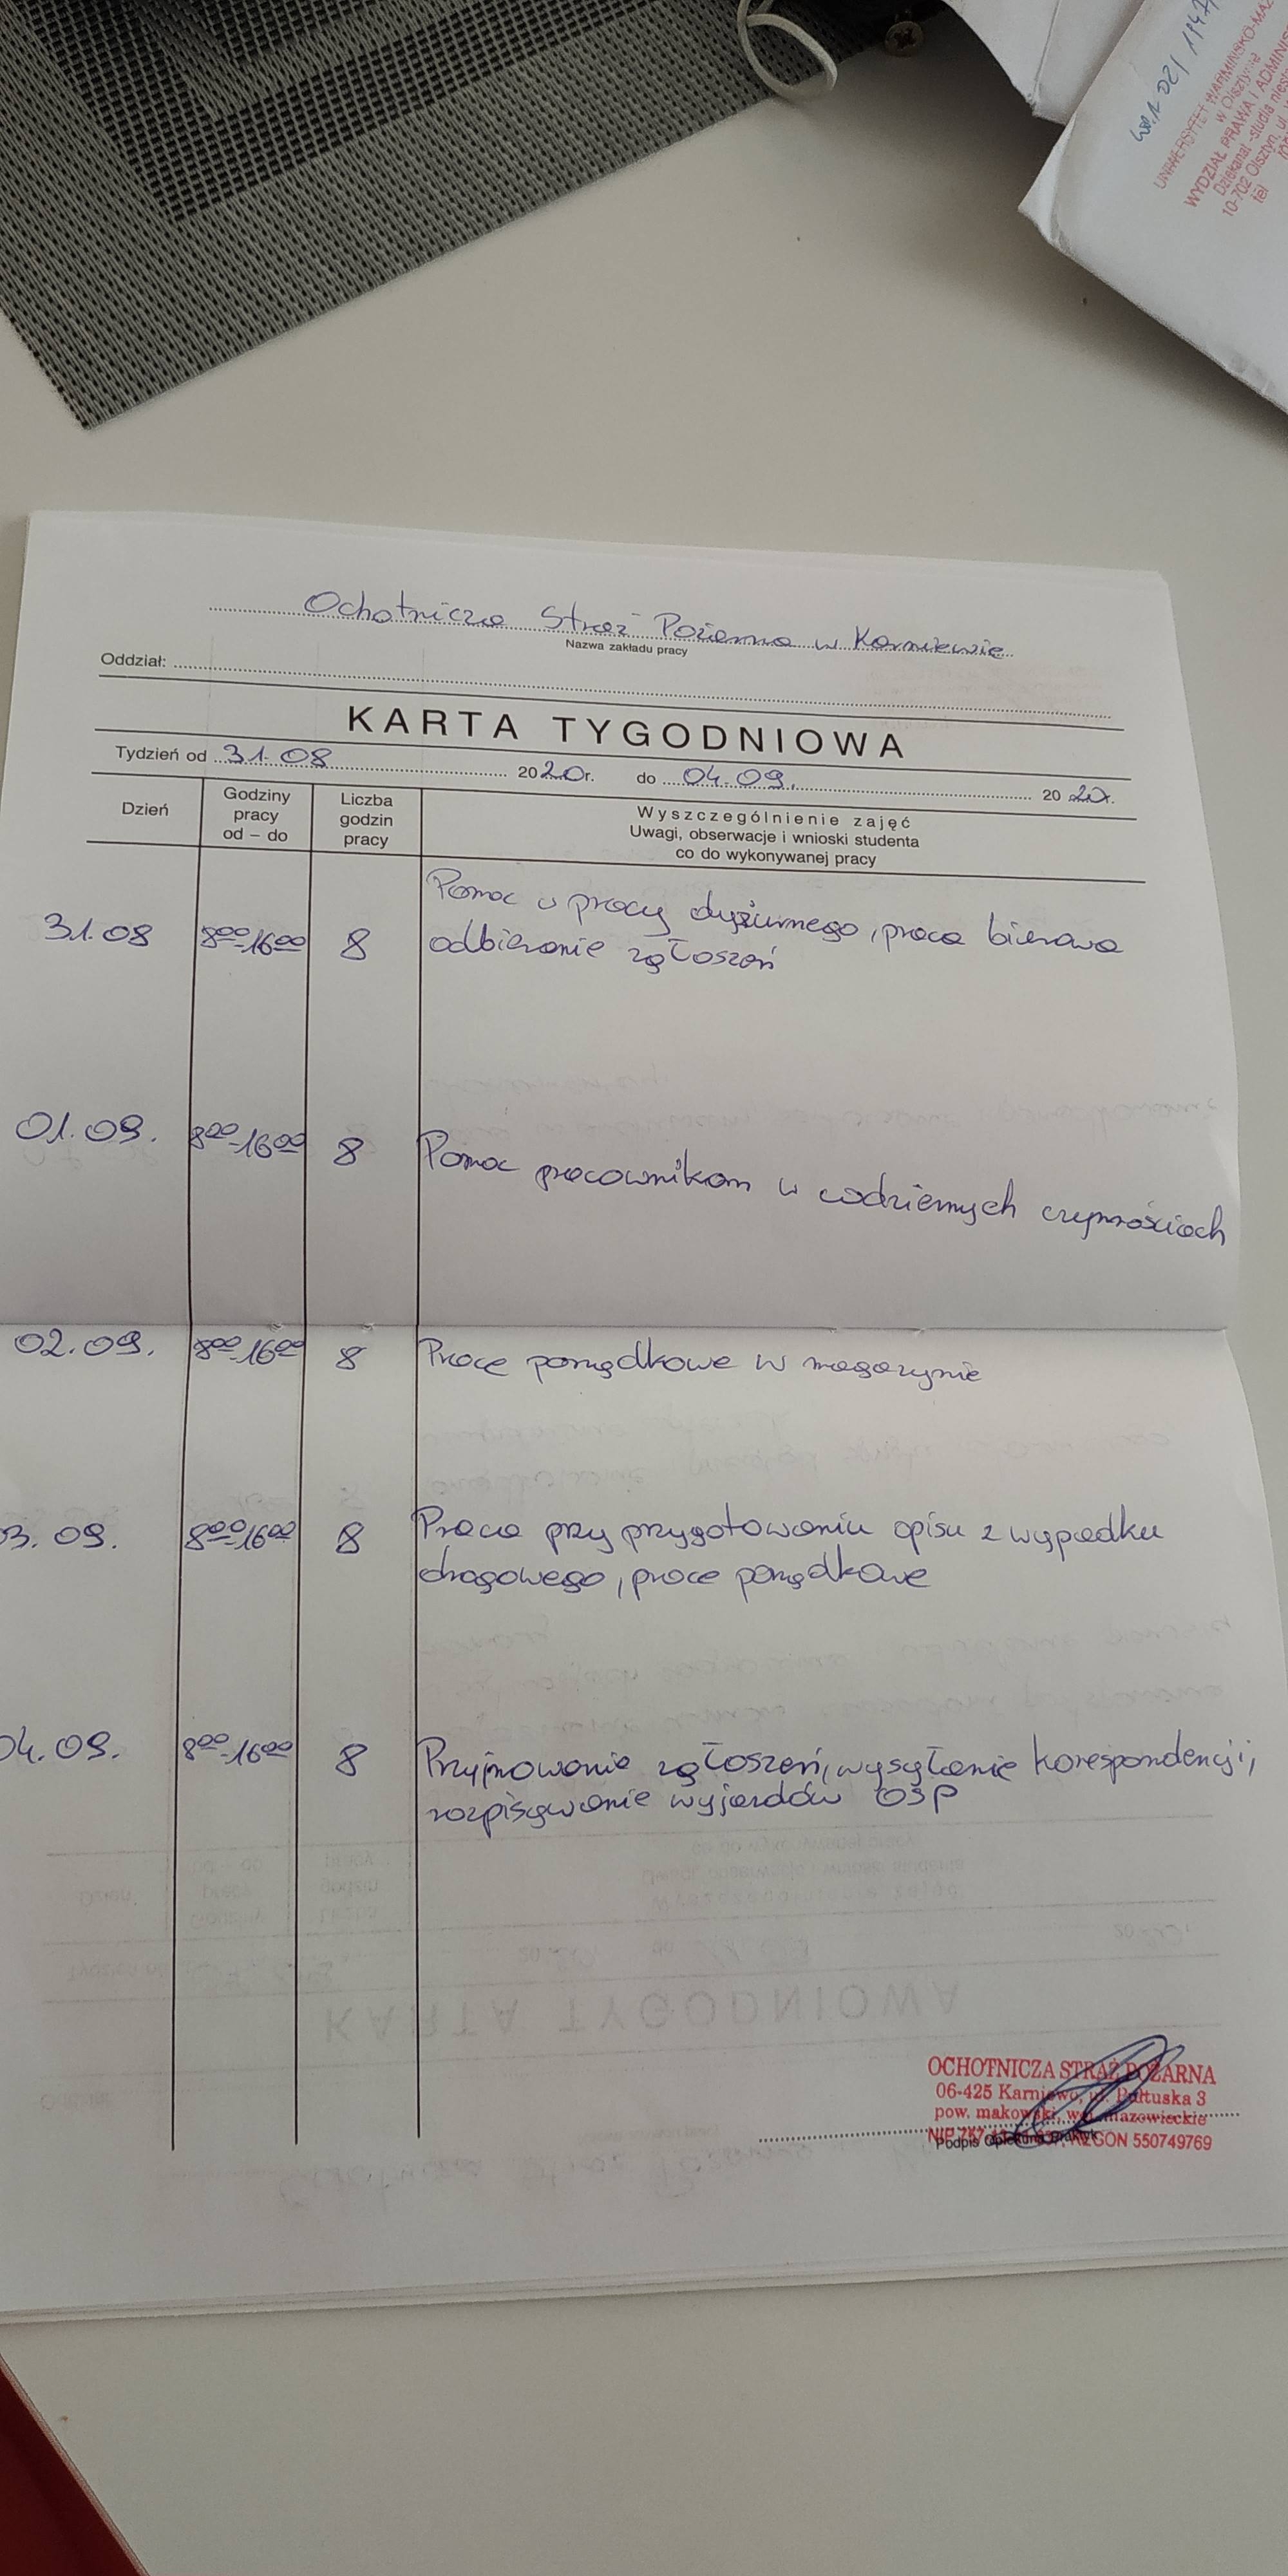 UNIWERSYTET WARMIŃSKO-MAZ
w Olsztynie
WYDZIAŁ PRAWA I ADMINIS
Dziekanat -studia nies
10-702 Olsztyn, ul.
tel
Ochotnicza Straż Pożarna w Karniewie
Nazwa zakładu pracy
Oddział:
KARTA TYGODNIOWA
Tydzień od 31.08 2020r. do 04.09. 2020r.
Dzień
Godziny pracy od – do
Liczba godzin pracy
Wyszczególnienie zajęć
Uwagi, obserwacje i wnioski studenta
co do wykonywanej pracy
31.08 800-1600 8 Pomoc u pracy dyżurnego, praca biurowa
odbieranie zgłoszeń
01.09. 800-1600 8 Pomoc pracownikom w codziennych czynnościach
02.09. 800-1600 8 Prace porządkowe w magazynie
03.09. 800-1600 8 Praca przy przygotowaniu opisu z wypadku
drogowego, prace porządkowe
04.09. 800-1600 8 Przyjmowanie zgłoszeń, wysyłanie korespondencji,
rozpisywanie wyjazdów OSP
OCHOTNICZA STRAŻ POŻARNA
06-425 Karniewo, ul. Pułtuska 3
pow. makowski, woj. mazowieckie
NIP 757 REGON 550749769
Podpis Opiekuna Praktyk